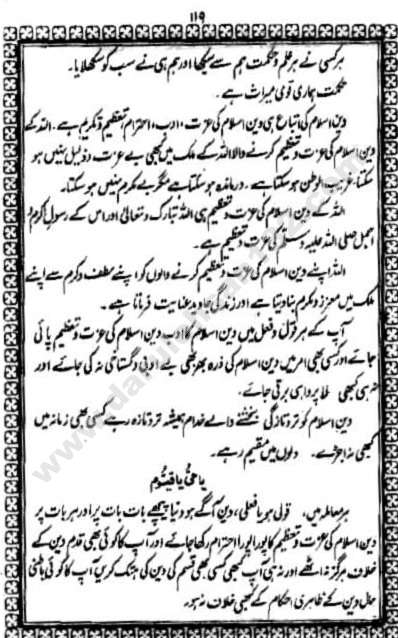 ۱۱۹
ہر کسی نے ہر علم و حکمت ہم سے سیکھا اور ہم ہی نے سب کو سکھلایا۔
حکمت ہماری قومی میراث ہے۔
دین اسلام کی اتباع ہی دین اسلام کی عزت، ادب، احترام، تعظیم و تکریم ہے۔ اللہ کے
دین اسلام کی عزت و تعظیم کرنے والا اللہ کے ملک میں کبھی بے عزت و ذلیل نہیں ہو
سکتا، غریب الوطن ہو سکتا ہے۔ درماندہ ہو سکتا ہے مگر بے مکرم نہیں ہو سکتا۔
اللہ کے دین اسلام کی عزت و تعظیم ہی اللہ تبارک و تعالیٰ اور اس کے رسول اکرم و
اجمل صلی اللہ علیہ وسلم کی عزت و تعظیم ہے۔
اللہ اپنے دین اسلام کی عزت و تعظیم کرنے والوں کو اپنے لطف و کرم سے اپنے
ملک میں معزز و مکرم بنا دیتا ہے اور زندگی جاوید عنایت فرماتا ہے۔
آپ کے ہر قول و فعل میں دین اسلام کا ادب دین اسلام کی عزت و تعظیم پائی
جائے اور کسی بھی امر میں دین اسلام کی ذرہ بھر بھی بے ادبی و گستاخی نہ کی جائے اور
نہ ہی کبھی لا پرواہی برتی جائے۔
دین اسلام کو تر و تازگی بخشنے والے خدام ہمیشہ تر و تازہ رہے کسی بھی زمانہ میں
کبھی نہ اجڑے۔ دلوں میں مقیم رہے۔
یا حی یا قیوم
ہر معاملہ میں، قولی ہو یا فعلی، دین آگے ہو دنیا پیچھے بات بات پر اور ہر بات پر
دین اسلام کی عزت و تعظیم کا پورا پورا احترام رکھا جائے اور آپ کا کوئی بھی قدم دین کے
خلاف ہرگز نہ اٹھے اور نہ ہی آپ کبھی کسی بھی قسم کی دین کی ہتک کریں آپ کا کوئی باطنی
حال دین کے ظاہری احکام کے کبھی خلاف نہ ہو۔